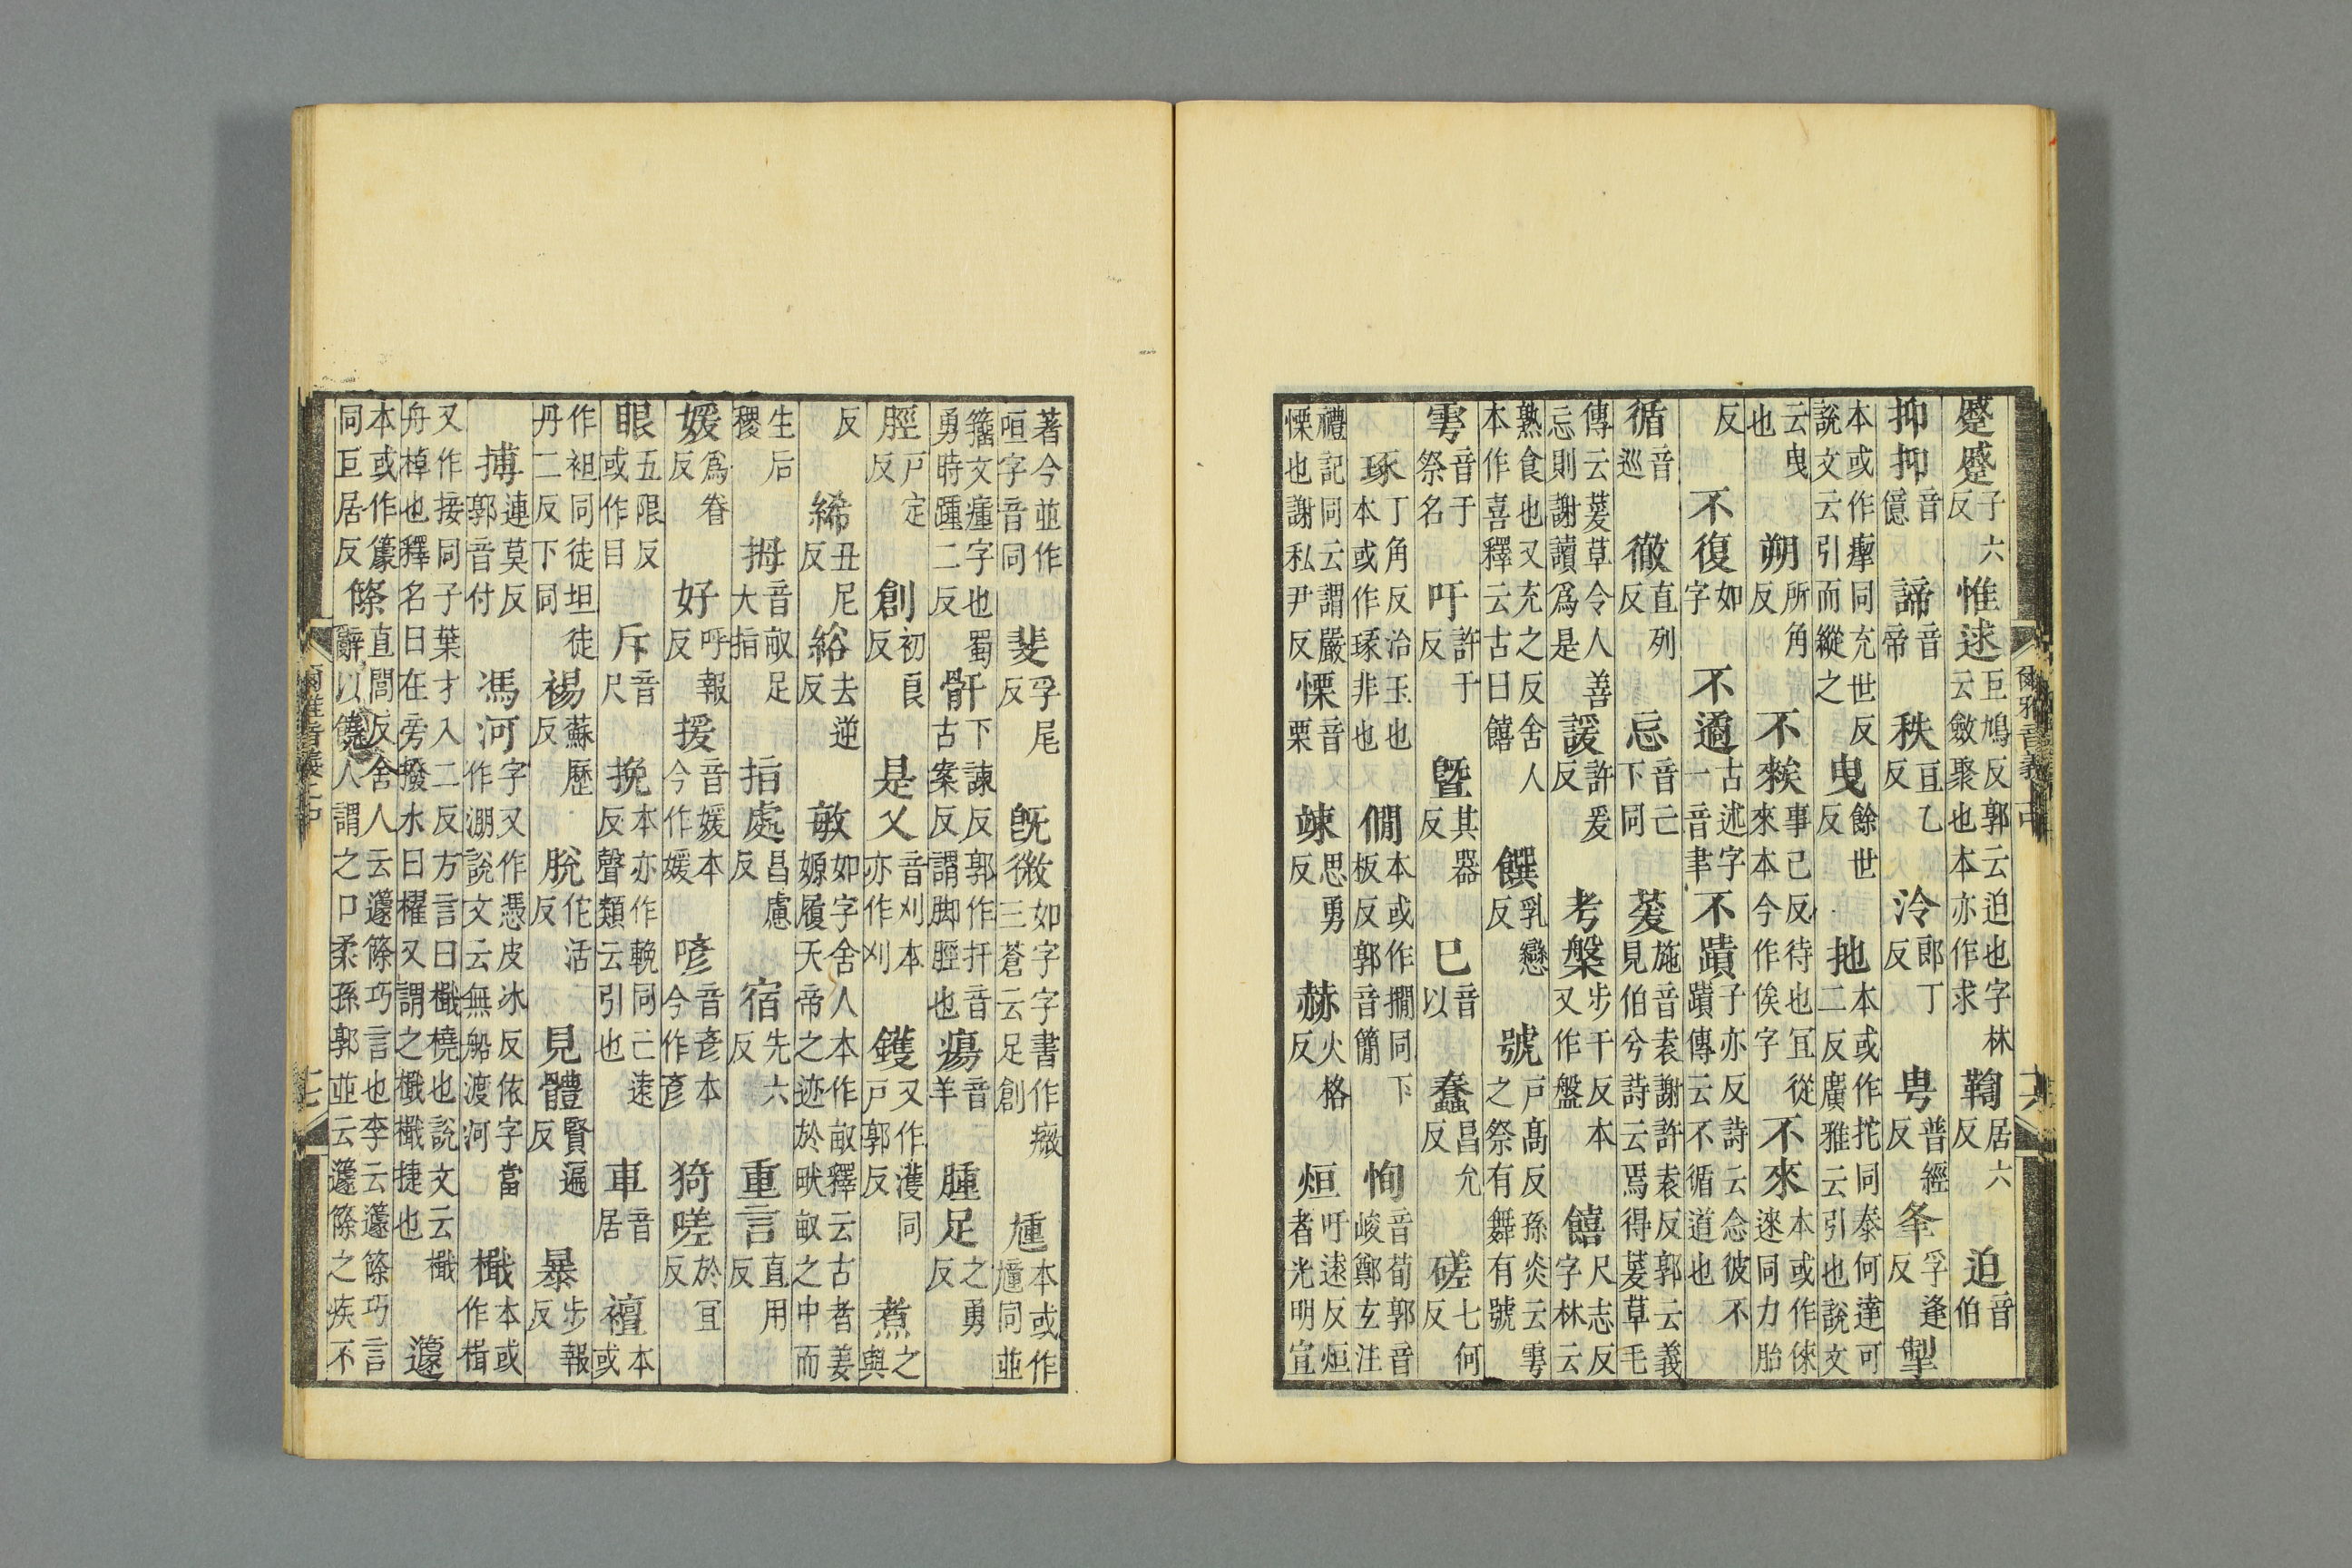 蹙蹙子六反惟逑巨鳩反郭云迫也字林云斂聚也本亦作求鞫居六反迫音伯
抑抑音億諦音帝秩直乙反泠郎丁反甹普經反夆孚逢反掣
本或作同充世反說文云引而縱之曳餘世反扡本或作拕同泰何達可二反廣雅云引也說文
云曳也朔所角反不𥎦事已反待也冝從來本今作俟字不來本或作倈逨同力胎
反不復如字不遹古述字一音聿不蹟子亦反詩云念彼不蹟傳云不循道也
循音巡徹直列反忘音亡下同萲施音袁謝許袁反郭云義見伯兮詩云焉得萲草毛
傳云萲草令人善忘則謝讀爲是諼許爰反考槃步干反本又作盤饎尺志反字林云
熟食也又充之反舍人本作喜釋云古曰饎饌乳戀反號戶髙反孫炎云雩之祭有舞有號
雩音于祭名吁許于反曁其器反巳音以蠢昌允反磋七何反
琢丁角反治玉也本或作琢非也僩本或作撊同下板反郭音簡恂音荀郭音峻鄭玄注
禮記同云謂嚴慄也謝私尹反慄音栗竦思勇反赫火格反烜吁逺反烜者光明宣
爾雅音義中
著今並作咺字音同斐孚尾反旣微如字字書作癓三蒼云足創尰本或作同並
籀文瘇字也蜀勇時踵二反骭下諫反郭作扞音古案反謂脚脛也瘍音羊腫足之勇反
脛戸定反創初良反是乂音刈本亦作刈鑊又作濩同戸郭反煮之與
反絺丑尼反綌去逆反敏如字舍人本作畝釋云古者姜嫄履天帝之迹於畎畝之中而
生后稷拇音畝足大指指處昌慮反宿先六反重言直用反
媛爲眷反好呼報反援音媛本今作媛喭音彥本今作彥猗嗟於冝反
眼五限反或作目斥音尺挽本亦作輓同亡逺反聲類云引也車音居襢本或
作袒同徒坦徒丹二反下同裼蘇歷反脫佗活反見體賢遍反暴步報反
搏連莫反郭音付馮河字又作憑皮冰反依字當作淜說文云無船渡河檝本或作楫
又作接同子葉才入二反方言曰檝橈也說文云檝舟棹也釋名曰在旁撥水曰櫂又謂之檝檝捷也籧
本或作籧同巨居反篨直閭反舍人云籧篨巧言也李云籧篨巧言辭以饒人謂之口柔孫郭並云籧篨之疾不